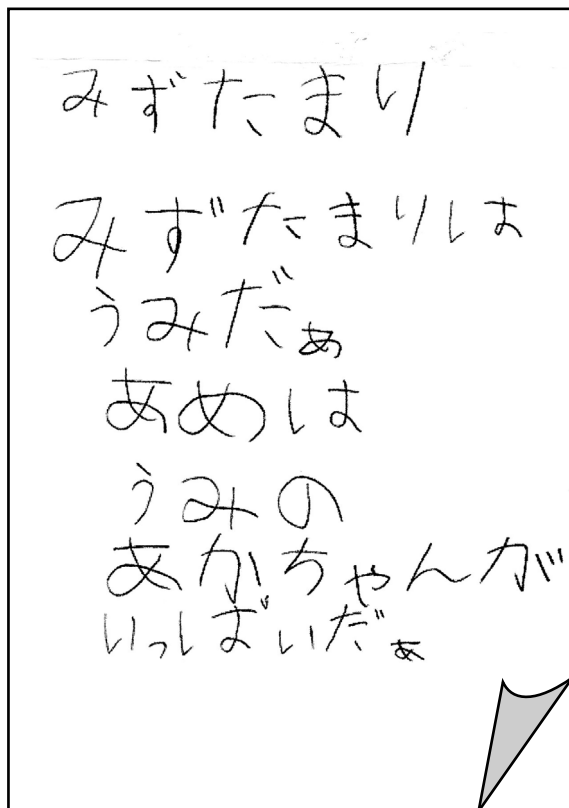 みずたまり
みずたまりは
うみだぁ
あめは
うみの
あかちゃんが
いっぱいだぁ